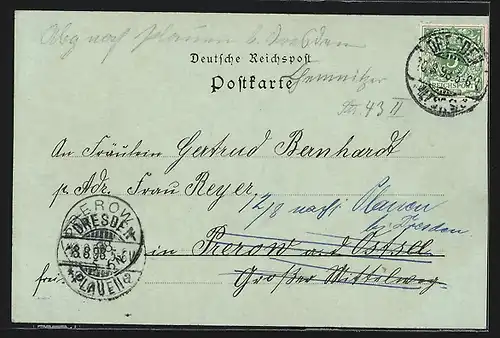 Abg nach Plauen b. Dresden
Deutsche Reichspost
Postkarte
Chemnitzer
Str. 43 II
DRESDEN
An Fräulein Gertrud Bernhardt
p. Adr. Frau Reyer.
12/8 nach Plauen
bei Dresden
in Prerow a/d Ostsee
Großer Mittelweg
PREROW
DRESDEN
PLAUEN